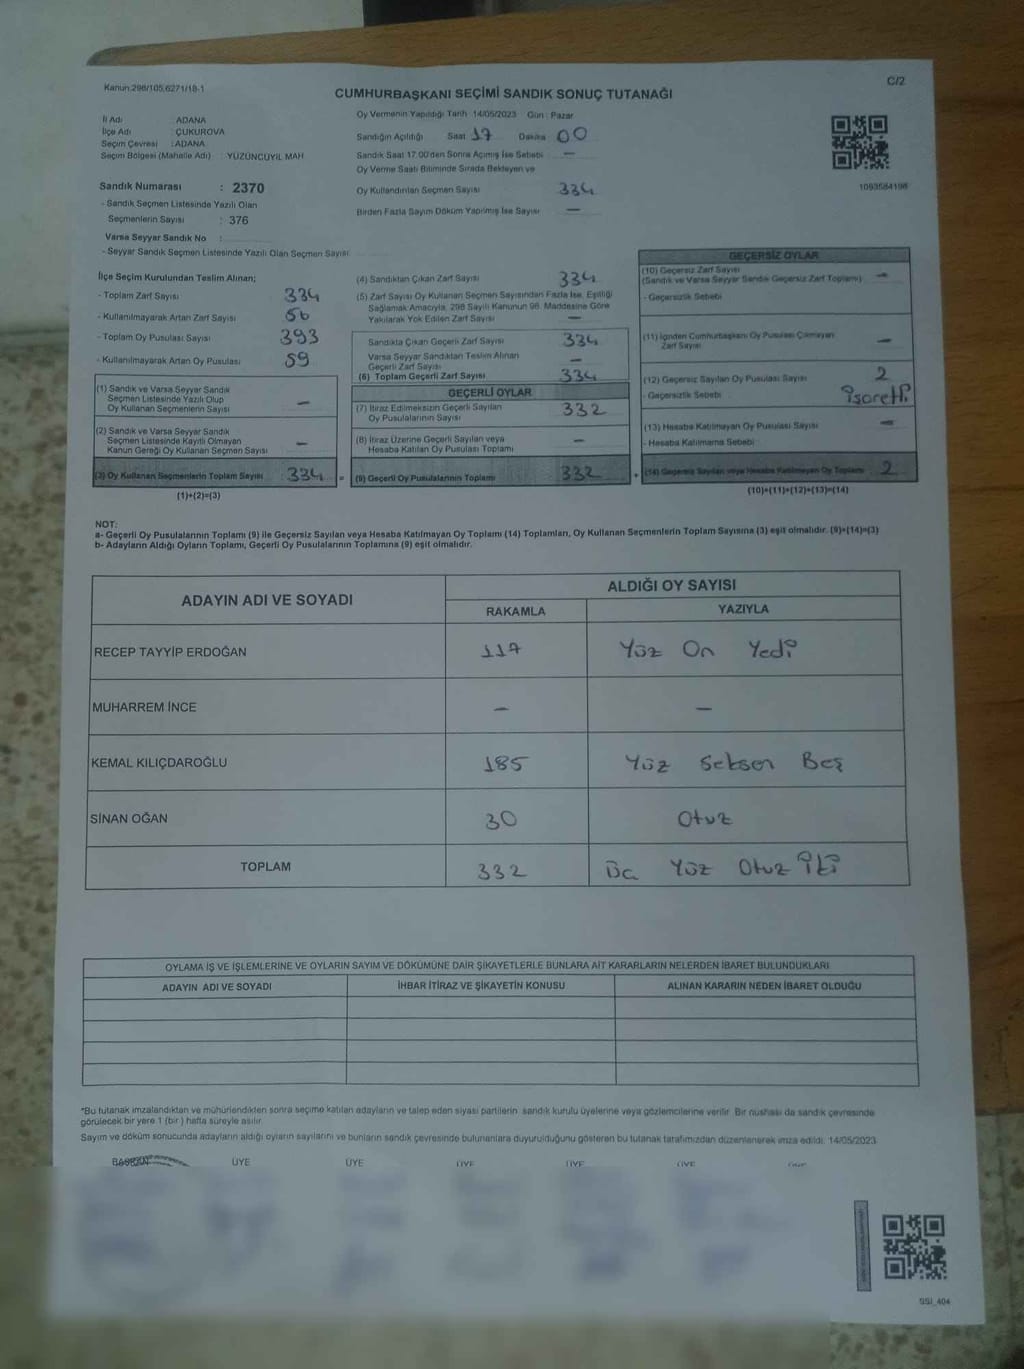 Kanun:298/105,6271/18-1
C/2
CUMHURBAŞKANI SEÇİMİ SANDIK SONUÇ TUTANAĞI
İl Adı : ADANA
İlçe Adı : ÇUKUROVA
Seçim Çevresi : ADANA
Seçim Bölgesi (Mahalle Adı) : YÜZÜNCÜYIL MAH
Sandık Numarası : 2370
- Sandık Seçmen Listesinde Yazılı Olan
Seçmenlerin Sayısı : 376
Varsa Seyyar Sandık No :
- Seyyar Sandık Seçmen Listesinde Yazılı Olan Seçmen Sayısı
Oy Vermenin Yapıldığı Tarih 14/05/2023 Gün : Pazar
Sandığın Açıldığı Saat 17 Dakika 00
Sandık Saat 17.00'den Sonra Açımış İse Sebebi —
Oy Verme Saati Bitiminde Sırada Bekleyen ve
Oy Kullandırılan Seçmen Sayısı 334
Birden Fazla Sayım Döküm Yapılmış İse Sayısı —
1093584196
İlçe Seçim Kurulundan Teslim Alınan;
- Toplam Zarf Sayısı 334
- Kullanılmayarak Artan Zarf Sayısı 56
- Toplam Oy Pusulası Sayısı 393
- Kullanılmayarak Artan Oy Pusulası 59
(1) Sandık ve Varsa Seyyar Sandık
Seçmen Listesinde Yazılı Olup
Oy Kullanan Seçmenlerin Sayısı —
(2) Sandık ve Varsa Seyyar Sandık
Seçmen Listesinde Kayıtlı Olmayan
Kanun Gereği Oy Kullanan Seçmen Sayısı —
(3) Oy Kullanan Seçmenlerin Toplam Sayısı 334 =
(1)+(2)=(3)
(4) Sandıktan Çıkan Zarf Sayısı 334
(5) Zarf Sayısı Oy Kullanan Seçmen Sayısından Fazla İse, Eşitliği
Sağlamak Amacıyla, 298 Sayılı Kanunun 98. Maddesine Göre
Yakılarak Yok Edilen Zarf Sayısı —
Sandıkta Çıkan Geçerli Zarf Sayısı 334
Varsa Seyyar Sandıktan Teslim Alınan
Geçerli Zarf Sayısı —
(6) Toplam Geçerli Zarf Sayısı 334
GEÇERLİ OYLAR
(7) İtiraz Edilmeksizin Geçerli Sayılan
Oy Pusulalarının Sayısı 332
(8) İtiraz Üzerine Geçerli Sayılan veya
Hesaba Katılan Oy Pusulası Toplamı —
(9) Geçerli Oy Pusulalarının Toplamı 332 +
GEÇERSİZ OYLAR
(10) Geçersiz Zarf Sayısı
(Sandık ve Varsa Seyyar Sandık Geçersiz Zarf Toplamı) —
- Geçersizlik Sebebi
(11) İçinden Cumhurbaşkanı Oy Pusulası Çıkmayan
Zarf Sayısı —
(12) Geçersiz Sayılan Oy Pusulası Sayısı 2
- Geçersizlik Sebebi işaretli
(13) Hesaba Katılmayan Oy Pusulası Sayısı —
- Hesaba Katılmama Sebebi
(14) Geçersiz Sayılan veya Hesaba Katılmayan Oy Toplamı 2
(10)+(11)+(12)+(13)=(14)
NOT:
a- Geçerli Oy Pusulalarının Toplamı (9) ile Geçersiz Sayılan veya Hesaba Katılmayan Oy Toplamı (14) Toplamları, Oy Kullanan Seçmenlerin Toplam Sayısına (3) eşit olmalıdır. (9)+(14)=(3)
b- Adayların Aldığı Oyların Toplamı, Geçerli Oy Pusulalarının Toplamına (9) eşit olmalıdır.
ADAYIN ADI VE SOYADI
ALDIĞI OY SAYISI
RAKAMLA YAZIYLA
RECEP TAYYİP ERDOĞAN 117 Yüz On Yedi
MUHARREM İNCE — —
KEMAL KILIÇDAROĞLU 185 Yüz Seksen Beş
SİNAN OĞAN 30 Otuz
TOPLAM 332 Üç Yüz Otuz İki
OYLAMA İŞ VE İŞLEMLERİNE VE OYLARIN SAYIM VE DÖKÜMÜNE DAİR ŞİKAYETLERLE BUNLARA AİT KARARLARIN NELERDEN İBARET BULUNDUKLARI
ADAYIN ADI VE SOYADI İHBAR İTİRAZ VE ŞİKAYETİN KONUSU ALINAN KARARIN NEDEN İBARET OLDUĞU
*Bu tutanak imzalandıktan ve mühürlendikten sonra seçime katılan adayların ve talep eden siyasi partilerin sandık kurulu üyelerine veya gözlemcilerine verilir. Bir nüshası da sandık çevresinde
görülecek bir yere 1 (bir) hafta süreyle asılır.
Sayım ve döküm sonucunda adayların aldığı oyların sayılarını ve bunların sandık çevresinde bulunanlara duyurulduğunu gösteren bu tutanak tarafımızdan düzenlenerek imza edildi. 14/05/2023
BAŞKAN ÜYE ÜYE ÜYE ÜYE ÜYE
GSI_404